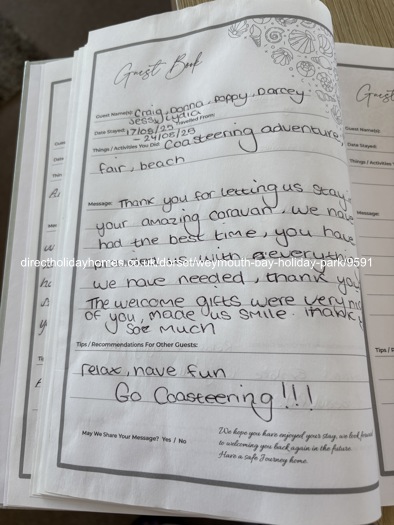 Guest Book
Guest Name(s): Craig, Donna, Poppy, Darcey
Jess, Lydia
Date Stayed: 17/05/25 Travelled From:
- 24/05/25
Things / Activities You Did: Coasteering adventure,
fair, beach
Message: Thank you for letting us stay
your amazing caravan, we have
had the best time, you have
directholidayhomes.co.uk/dorset/weymouth-bay-holiday-park/9591
we have needed, thank you
The welcome gifts were very
of you, made us smile. thank
soo much
Tips / Recommendations For Other Guests:
relax, have fun
Go Coasteering!!!
May We Share Your Message? Yes / No
We hope you have enjoyed your stay, we look forward
to welcoming you back again in the future.
Have a safe Journey home.
Guest
Guest Name(s)
Date Stayed:
Things / Activities
Message:
Tips / F